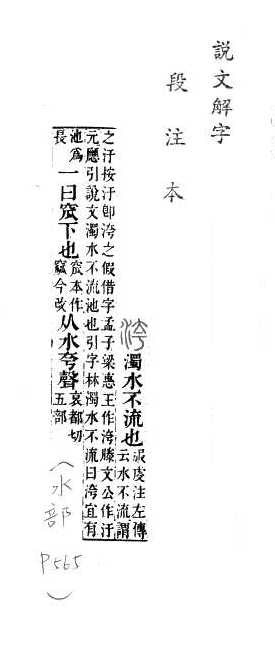 說文解字
段注本
洿 濁水不流也 服虔注左傳
云水不流謂
之汙按汙卽洿之假借字孟子梁惠王作洿滕文公作汙
元應引說文濁水不流池也引字林濁水不流曰洿宜有
池爲
長
一曰窊下也
窊本作
窳今改
从水夸聲
哀都切
五部
(水部
P565)